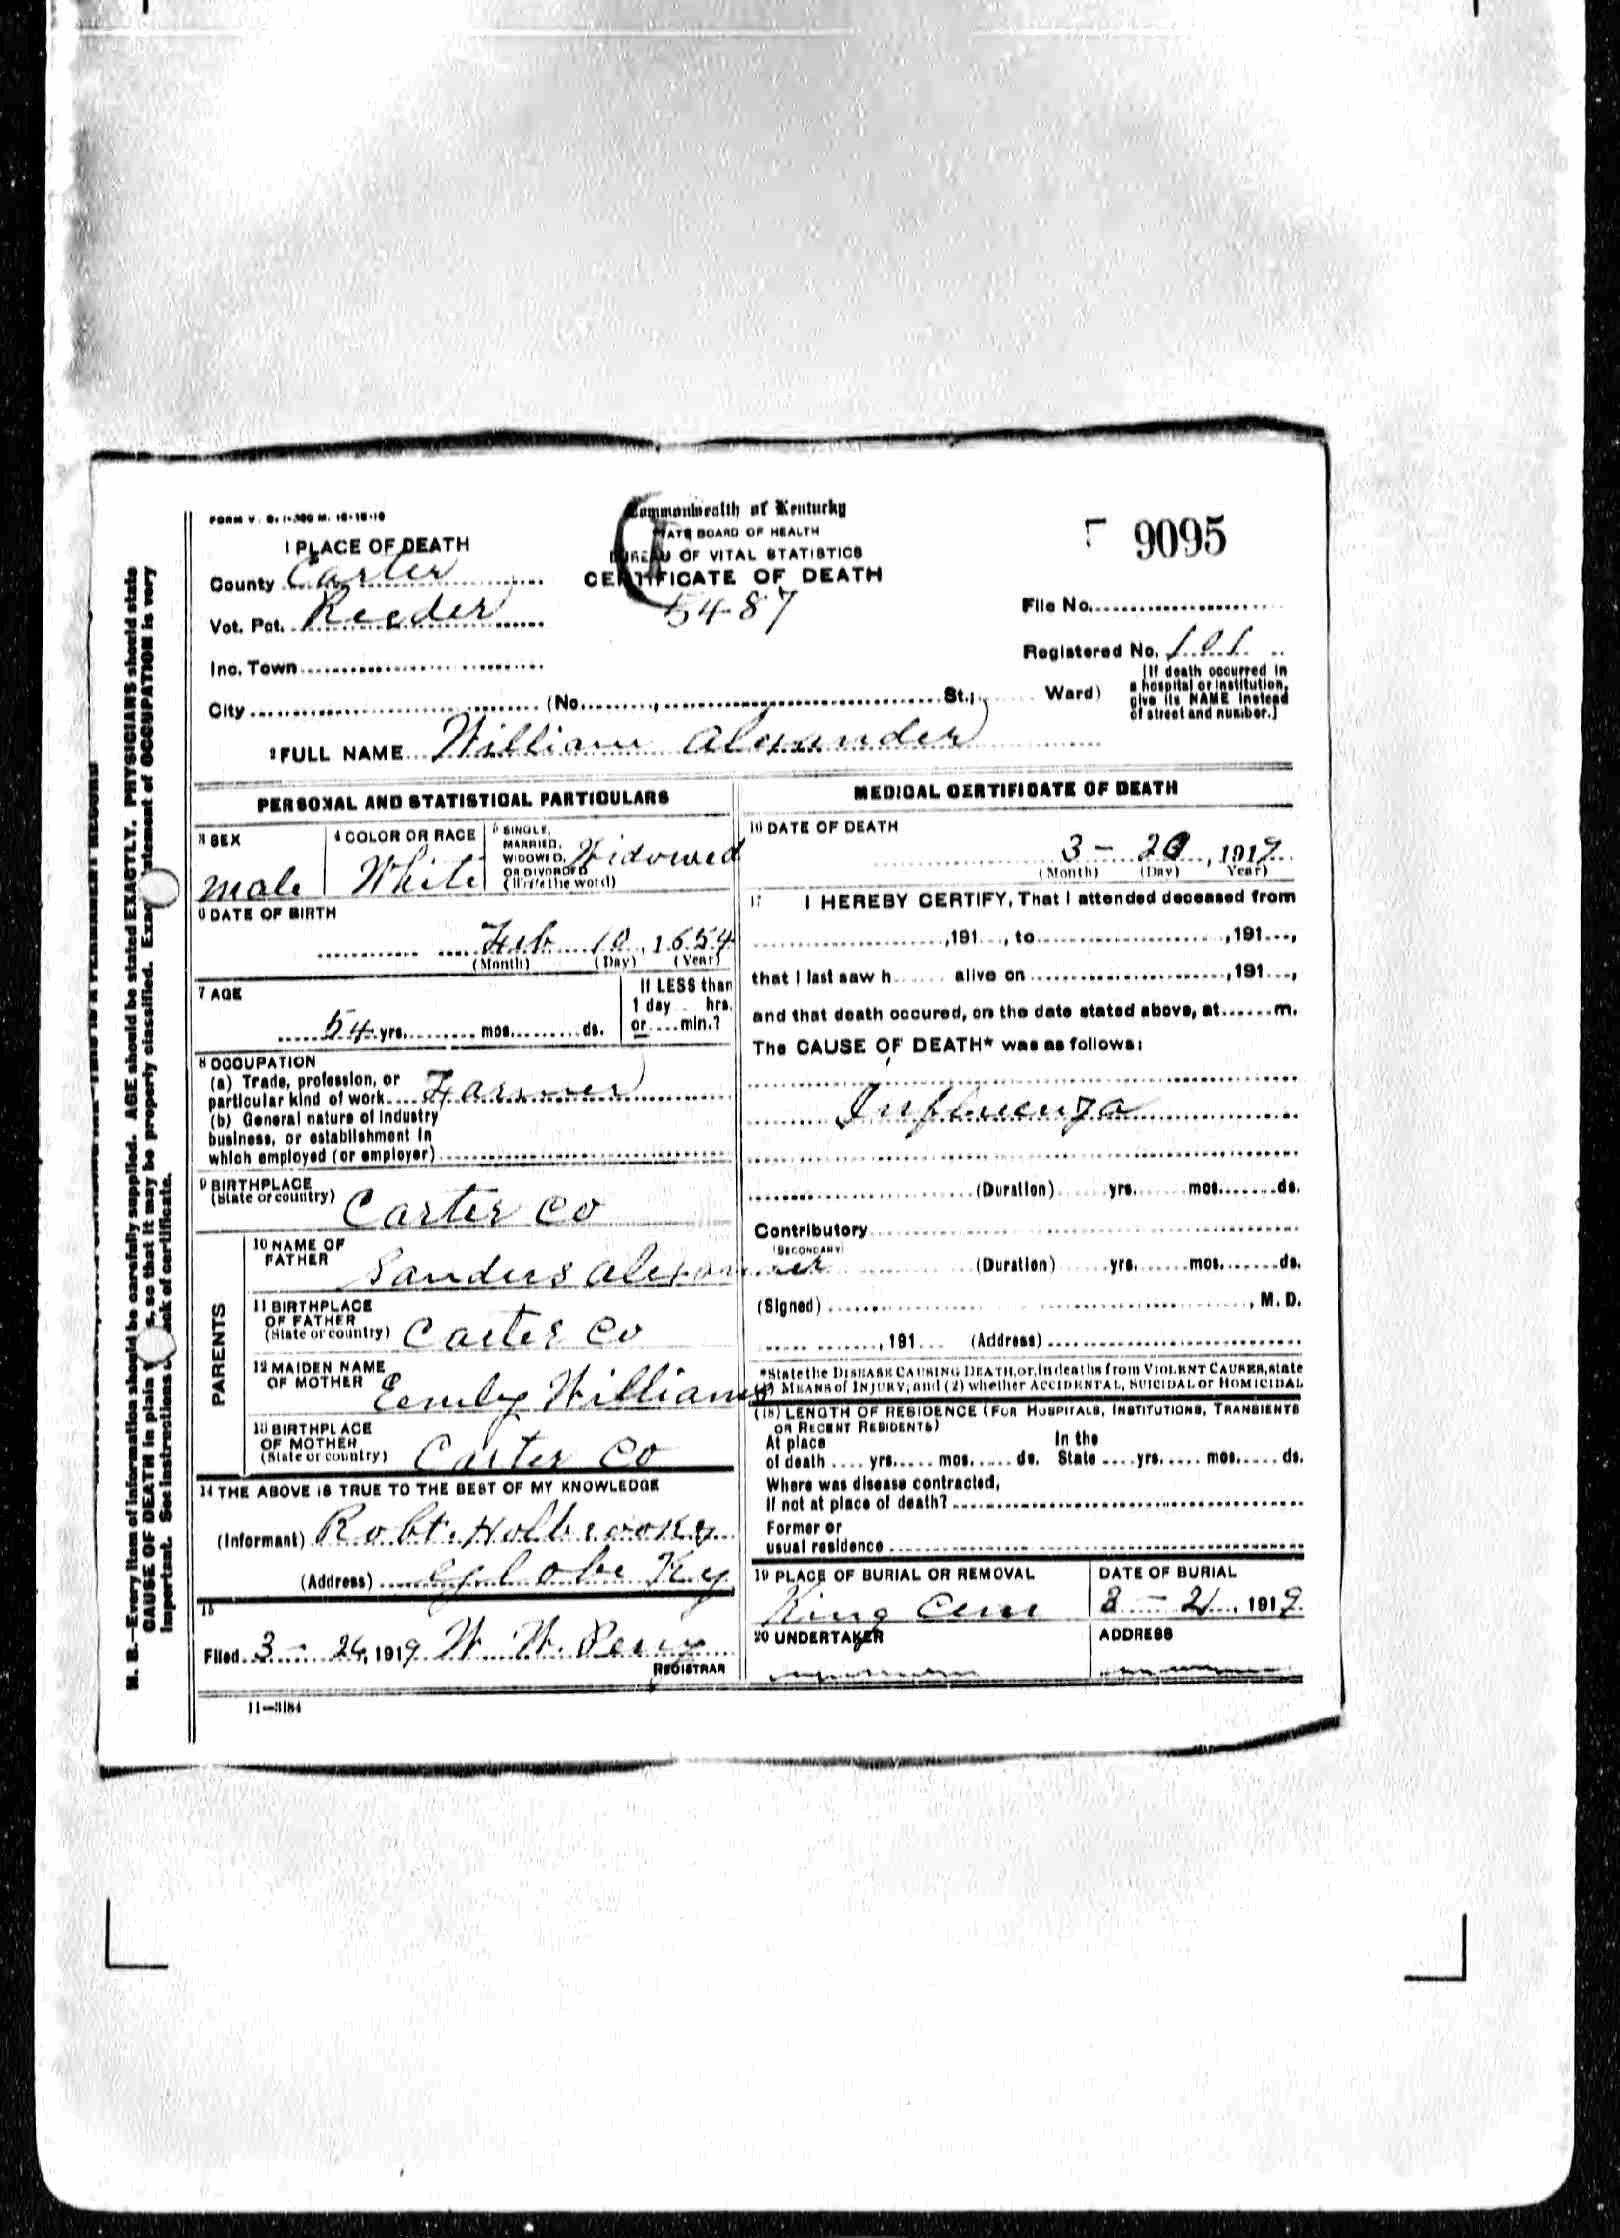 FORM V. S. 1-300 M. 10-18-10
Commonwealth of Kentucky
STATE BOARD OF HEALTH
BUREAU OF VITAL STATISTICS
CERTIFICATE OF DEATH
5487
9095
1 PLACE OF DEATH
County Carter
Vot. Pct. Reeder
Inc. Town
City (No. St.; Ward)
File No.
Registered No. 101
[If death occurred in
a hospital or institution,
give its NAME instead
of street and number.]
2 FULL NAME William Alexander
PERSONAL AND STATISTICAL PARTICULARS
3 SEX
Male
4 COLOR OR RACE
White
5 SINGLE,
MARRIED,
WIDOWED,
OR DIVORCED
(Write the word)
Widowed
6 DATE OF BIRTH
Feb 10, 1854
(Month) (Day) (Year)
7 AGE
54 yrs. mos. ds.
If LESS than
1 day hrs.
or min.?
8 OCCUPATION
(a) Trade, profession, or
particular kind of work Farmer
(b) General nature of industry
business, or establishment in
which employed (or employer)
9 BIRTHPLACE
(State or country) Carter Co
PARENTS
10 NAME OF
FATHER Sanders Alexander
11 BIRTHPLACE
OF FATHER
(State or country) Carter Co
12 MAIDEN NAME
OF MOTHER Eemily Williams
13 BIRTHPLACE
OF MOTHER
(State or country) Carter Co
14 THE ABOVE IS TRUE TO THE BEST OF MY KNOWLEDGE
(Informant) Robt. Holbrooks
(Address) Globe Ky
15
Filed 3 - 26, 1919 W. W. Perry
REGISTRAR
11-3184
MEDICAL CERTIFICATE OF DEATH
16 DATE OF DEATH
3 - 20, 1919
(Month) (Day) Year)
17 I HEREBY CERTIFY, That I attended deceased from
,191 , to ,191 ,
that I last saw h alive on ,191 ,
and that death occured, on the date stated above, at m.
The CAUSE OF DEATH* was as follows:
Influenza
(Duration) yrs. mos. ds.
Contributory
(SECONDARY)
(Duration) yrs. mos. ds.
(Signed) , M. D.
,191 (Address)
*State the DISEASE CAUSING DEATH, or, in deaths from VIOLENT CAUSES, state
(1) MEANS of INJURY; and (2) whether ACCIDENTAL, SUICIDAL or HOMICIDAL
(18) LENGTH OF RESIDENCE (FOR HOSPITALS, INSTITUTIONS, TRANSIENTS
OR RECENT RESIDENTS)
At place In the
of death yrs. mos. ds. State yrs. mos. ds.
Where was disease contracted,
If not at place of death?
Former or
usual residence
19 PLACE OF BURIAL OR REMOVAL
King Cem
DATE OF BURIAL
3 - 21, 1919
20 UNDERTAKER
ADDRESS
N. B.—Every item of information should be carefully supplied. AGE should be stated EXACTLY. PHYSICIANS should state
CAUSE OF DEATH in plain so that it may be properly classified. Exact statement of OCCUPATION is very
important. See instructions back of certificate.